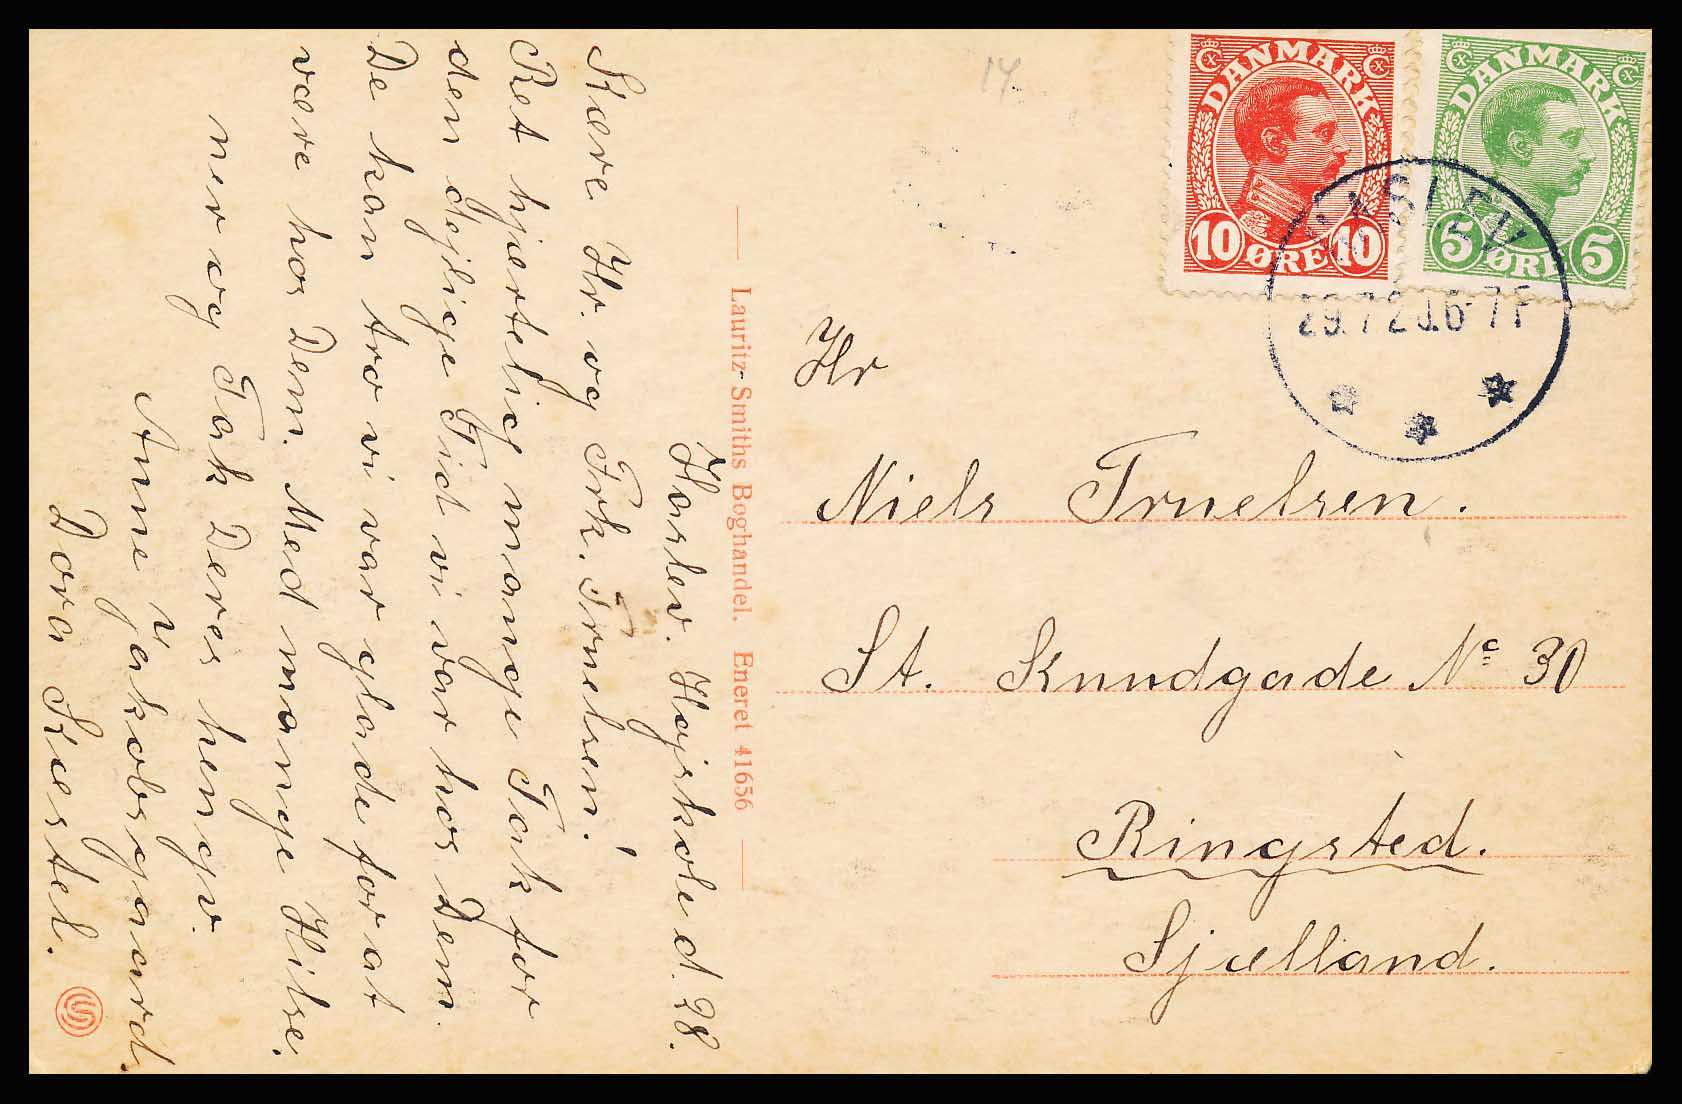 Haslev. Højskole d. 28.
Kære Hr. og Frk. Truelsen!
Ret hjærtelig mange Tak for
den dejlige Tid vi var hos Dem.
De kan tro vi var glade for at
være hos Dem. Med mange Hilse,
ner og Tak Deres hengv.
Anne Jakobsgaard.
Dora Kiestel.
Lauritz Smiths Boghandel. Eneret 41656
14
DANMARK
10 ØRE 10
DANMARK
5 ØRE 5
HASLEV
29.7 20.6-7F
Hr
Niels Truelsen.
St. Knudgade No 30
Ringsted.
Sjælland.